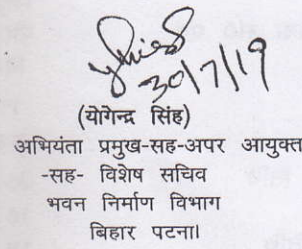 30/7/19
(योगेन्द्र सिंह)
अभियंता प्रमुख-सह-अपर आयुक्त
-सह- विशेष सचिव
भवन निर्माण विभाग
बिहार पटना।